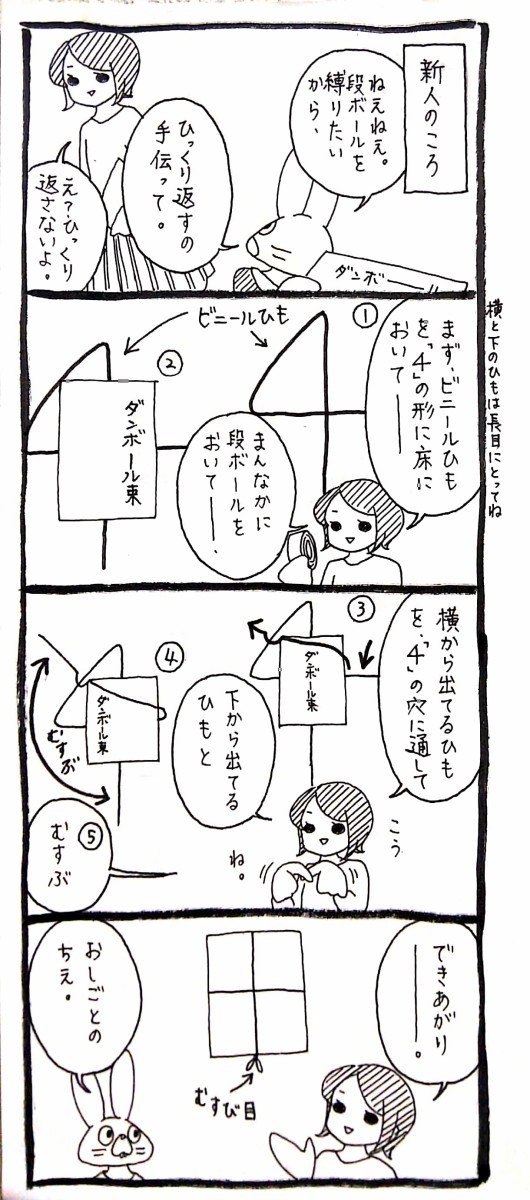 新人のころ
ねえねえ。
段ボールを
縛りたい
から、
ひっくり返すの
手伝って。
え?ひっくり
返さないよ。
ダンボー
横と下のひもは長目にとってね
まず、ビニールひも
を、「4」の形に床に
おいて――
①
ビニールひも
②
ダンボール束
まんなかに
段ボールを
おいて――、
横から出てるひも
を、「4」の穴に通して
③
ダンボール束
こう
下から出てる
ひもと
ね。
④
ダンボール束
むすぶ
⑤
むすぶ
できあがり
――。
むすび目
おしごとの
ちえ。